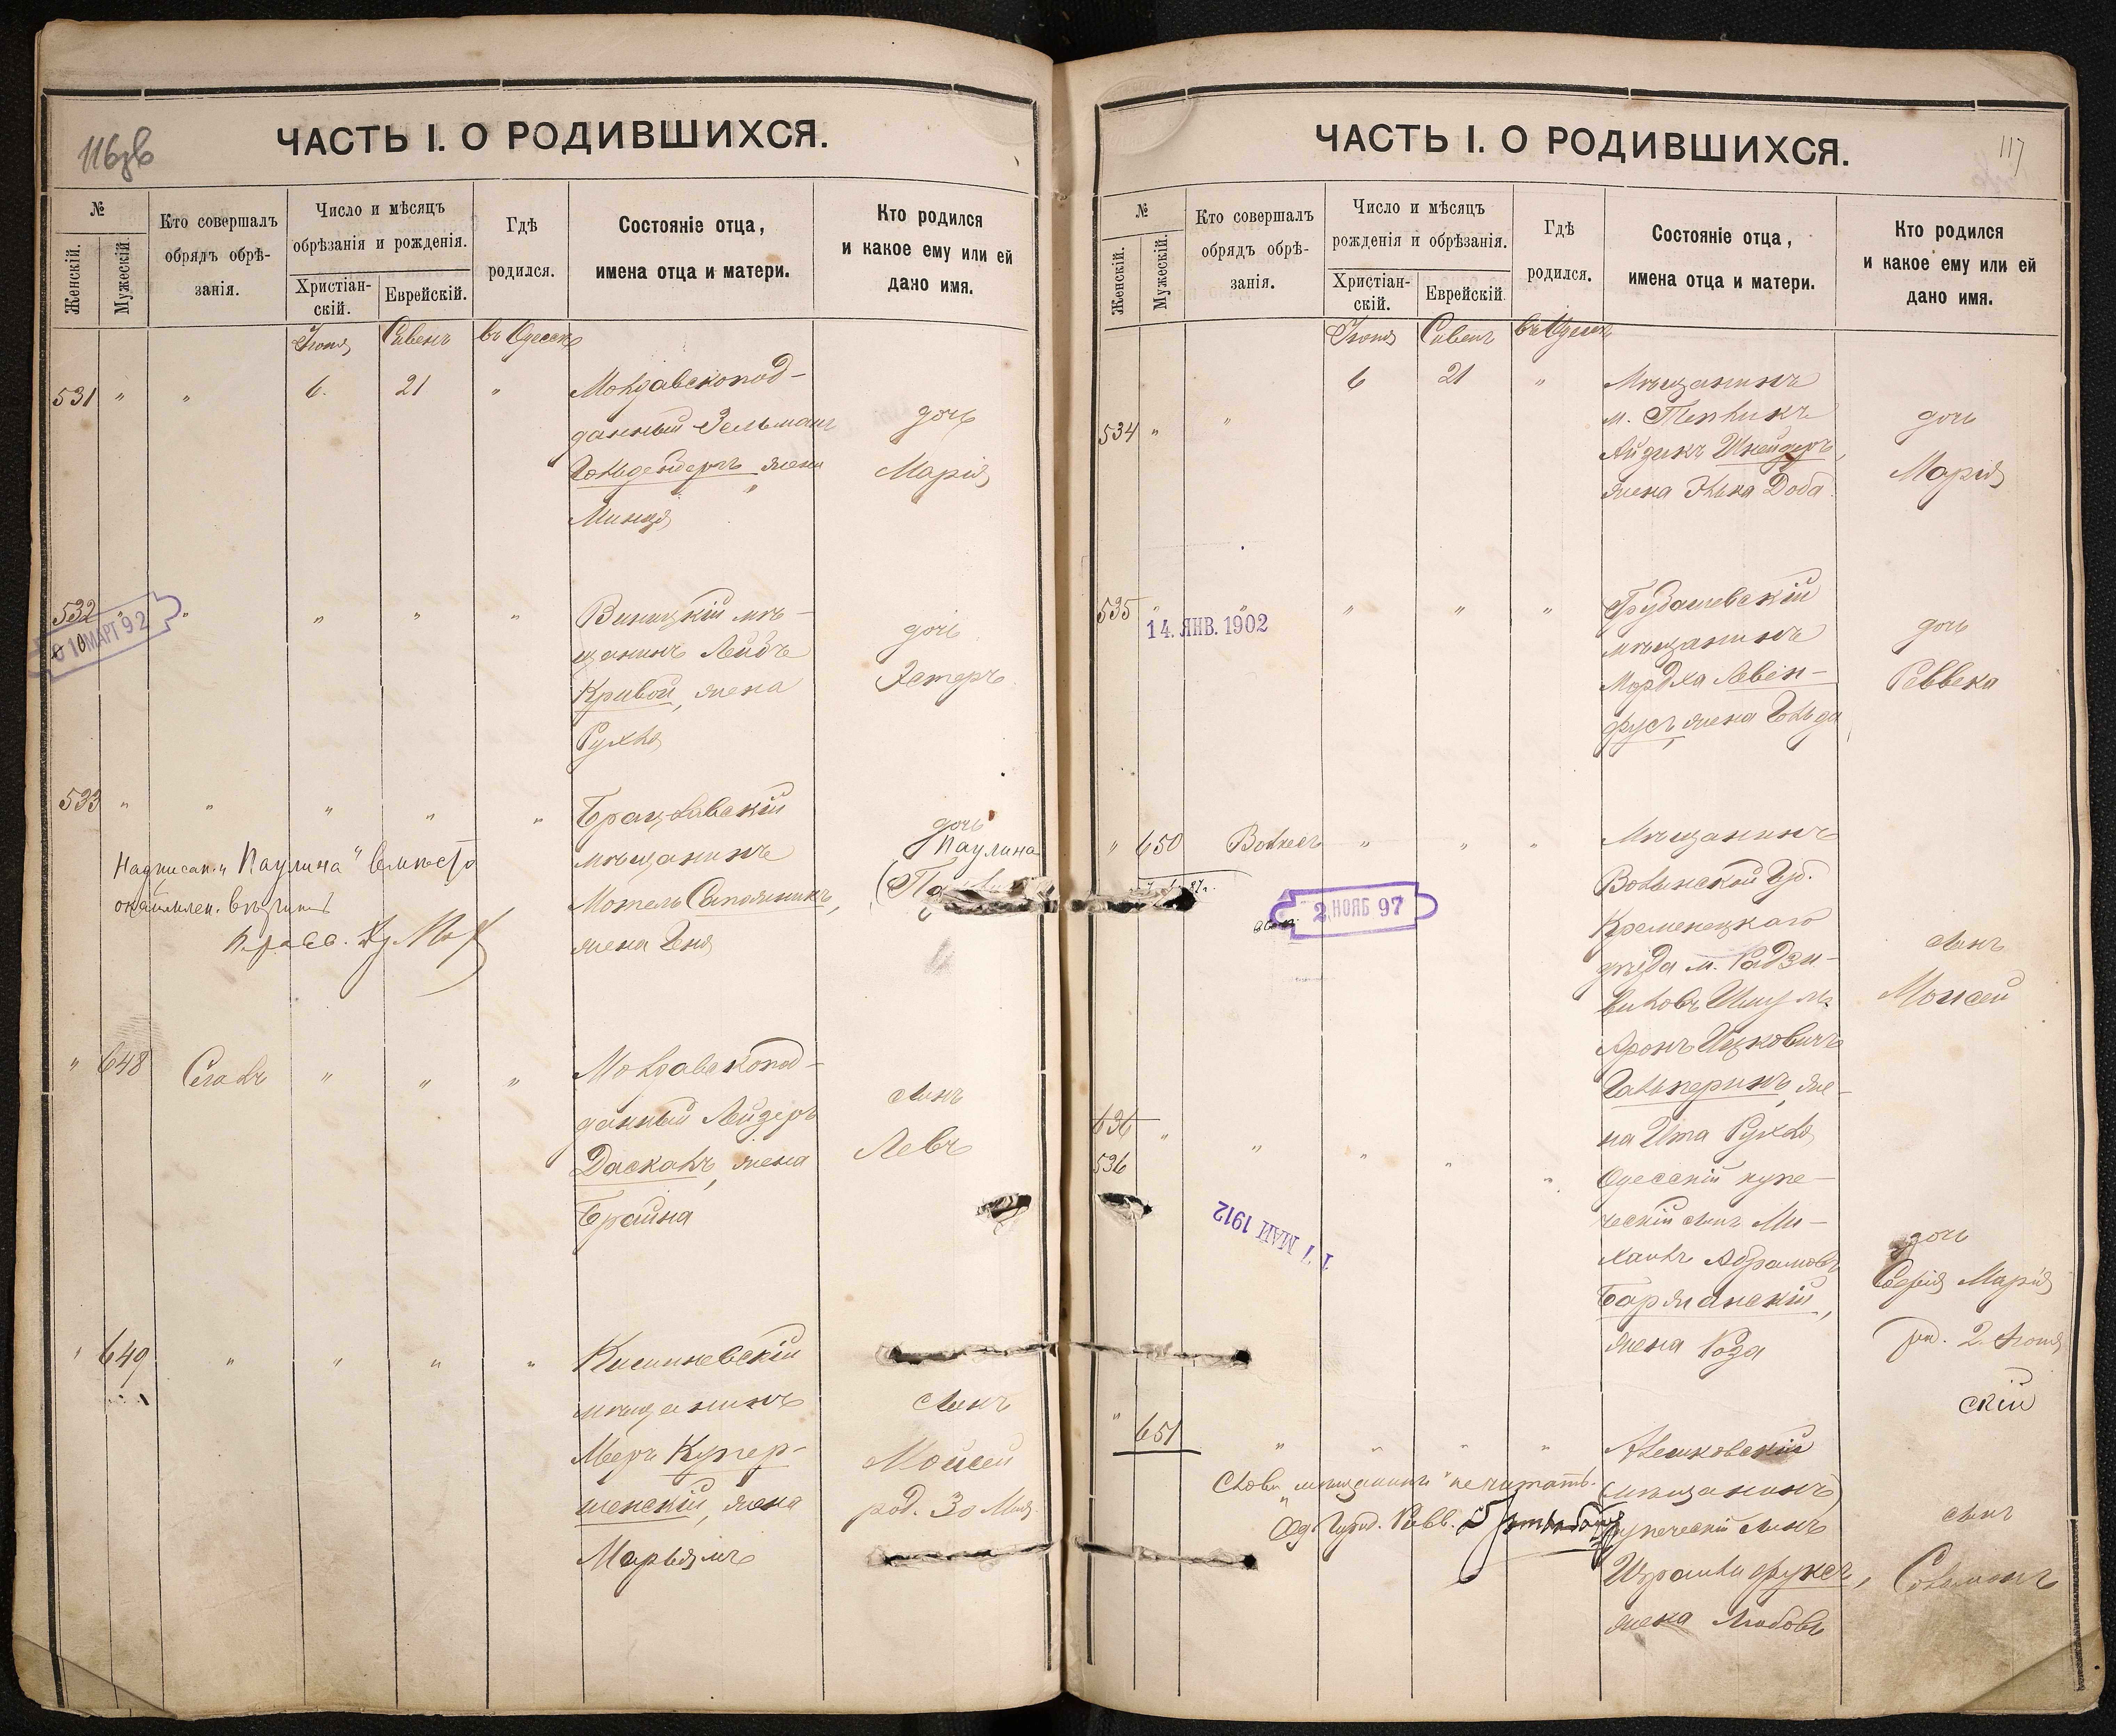 116зв
ЧАСТЬ I. О РОДИВШИХСЯ.
№
Женскій.
Мужескій.
Кто совершалъ
обрядъ обрѣ-
занія.
Число и мѣсяцъ
обрѣзанія и рожденія.
Христіан-
скій.
Еврейскій.
Гдѣ
родился.
Состояніе отца,
имена отца и матери.
Кто родился
и какое ему или ей
дано имя.
Іюня Сивенъ въ Одессѣ
531 " " 6. 21 " Молдавскопод-
данный Зельманъ
Гольденбергъ жена
Минця
дочь
Марія
532 " " " " " Виницкій мѣ-
щанинъ Лейбъ
Кривой, жена
Рухля
дочь
Эстеръ
МАРТ 92
533 " " " " " Брацлавскій
мѣщанинъ
Мотель Сапожникъ,
жена Геня
дочь
Паулина
Надписан. „Паулина" вмѣсто
" 648 Сегалъ " " " Молдавскопод-
данный Лейзеръ
Даскалъ, жена
Брайна
сынъ
Левъ
" 649 " " " " Кишиневскій
мѣщанинъ
Мееръ Купер-
шенскій, жена
Марьямъ
сынъ
Мойсей
род. 30 Мая.
117
ЧАСТЬ I. О РОДИВШИХСЯ.
№
Женскій.
Мужескій.
Кто совершалъ
обрядъ обрѣ-
занія.
Число и мѣсяцъ
рожденія и обрѣзанія.
Христіан-
скій.
Еврейскій.
Гдѣ
родился.
Состояніе отца,
имена отца и матери.
Кто родился
и какое ему или ей
дано имя.
Іюня Сивенъ въ Одессѣ
534 " " 6 21 " Мѣщанинъ
м. Тепликъ
Айзикъ Шнейдеръ,
жена Элька Доба
дочь
Марія
535 " " " " " Трубашевскій
мѣщанинъ
Мордха Левен-
фусъ, жена Гольда
дочь
Реввека
14. ЯНВ. 1902
" 650 Волкесъ " " " Мѣщанинъ
Волынской Губ.
Кременецкаго
уѣзда м. Радзи-
виловъ Шмуль
Аронъ Ицковичъ
Гальперинъ, же-
на Ита Рухля
сынъ
Мойсей
2 НОЯБ 97
636
536 " " " " " Одесскій купе-
ческій сынъ Ми-
хаилъ Абрамовъ
Баржанскій,
жена Роза
дочь
Софія Марія
род. 2. Іюня
17 МАЙ 1912
скій
" 651 " " " " Алешковскій
(мѣщанинъ)
купеческій сынъ
Израиль Фуксъ,
жена Любовь
сынъ
Соломонъ
Слово „мѣщанинъ" не читать.
Од. Город. Равв.